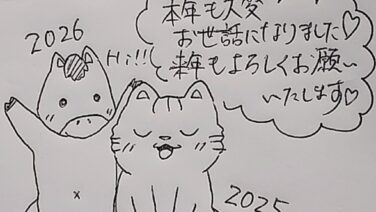 2026
Hi!!
本年も大変
お世話になりました♡
来年もよろしくお願い
いたします♡
2025